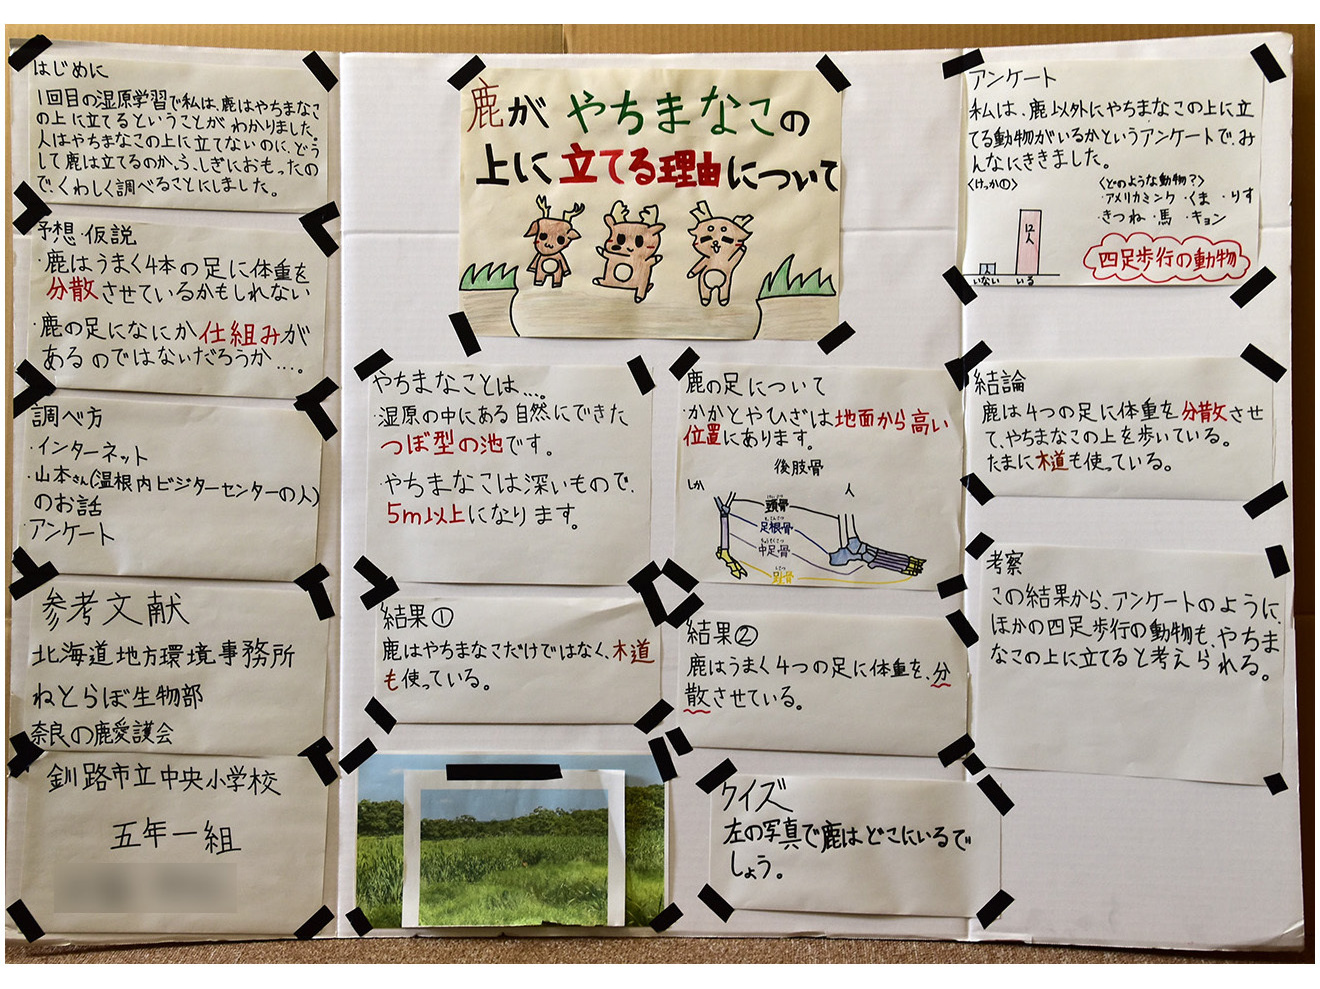 はじめに
1回目の湿原学習で私は、鹿はやちまなこ
の上に立てるということがわかりました。
人はやちまなこの上に立てないのに、どう
して鹿は立てるのか、ふしぎにおもったの
で、くわしく調べることにしました。
予想・仮説
・鹿はうまく4本の足に体重を
分散させているかもしれない
・鹿の足になにか仕組みが
あるのではないだろうか…。
調べ方
・インターネット
・山本さん(温根内ビジターセンターの人)
のお話
・アンケート
参考文献
北海道地方環境事務所
ねとらぼ生物部
奈良の鹿愛護会
釧路市立中央小学校
五年一組
鹿がやちまなこの
上に立てる理由について
やちまなことは…。
・湿原の中にある自然にできた
つぼ型の池です。
・やちまなこは深いもので、
5m以上になります。
結果①
鹿はやちまなこだけではなく、木道
も使っている。
鹿の足について
・かかとやひざは地面から高い
位置にあります。
後肢骨
しか
人
足根骨
中足骨
趾骨
結果②
鹿はうまく4つの足に体重を、分
散させている。
クイズ
左の写真で鹿はどこにいるで
しょう。
アンケート
私は、鹿以外にやちまなこの上に立
てる動物がいるかというアンケートで、み
んなにききました。
〈けっかの〉
〈どのような動物?〉
・アメリカミンク・くま・りす
・きつね・馬・キョン
四足歩行の動物
いない
いる
結論
鹿は4つの足に体重を分散させ
て、やちまなこの上を歩いている。
たまに木道も使っている。
考察
この結果から、アンケートのように、
ほかの四足歩行の動物も、やちま
なこの上に立てると考えられる。